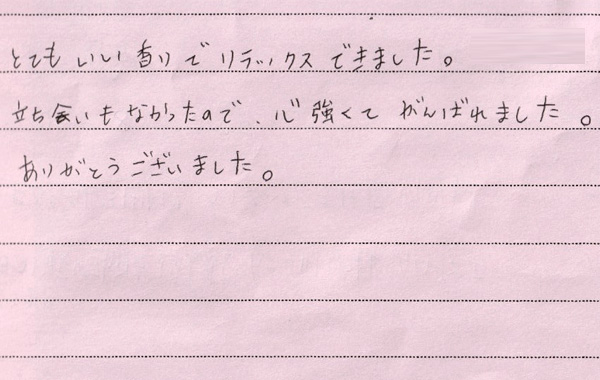 とてもいい香りでリラックスできました。
立ち会いもなかったので、心強くてがんばれました。
ありがとうございました。